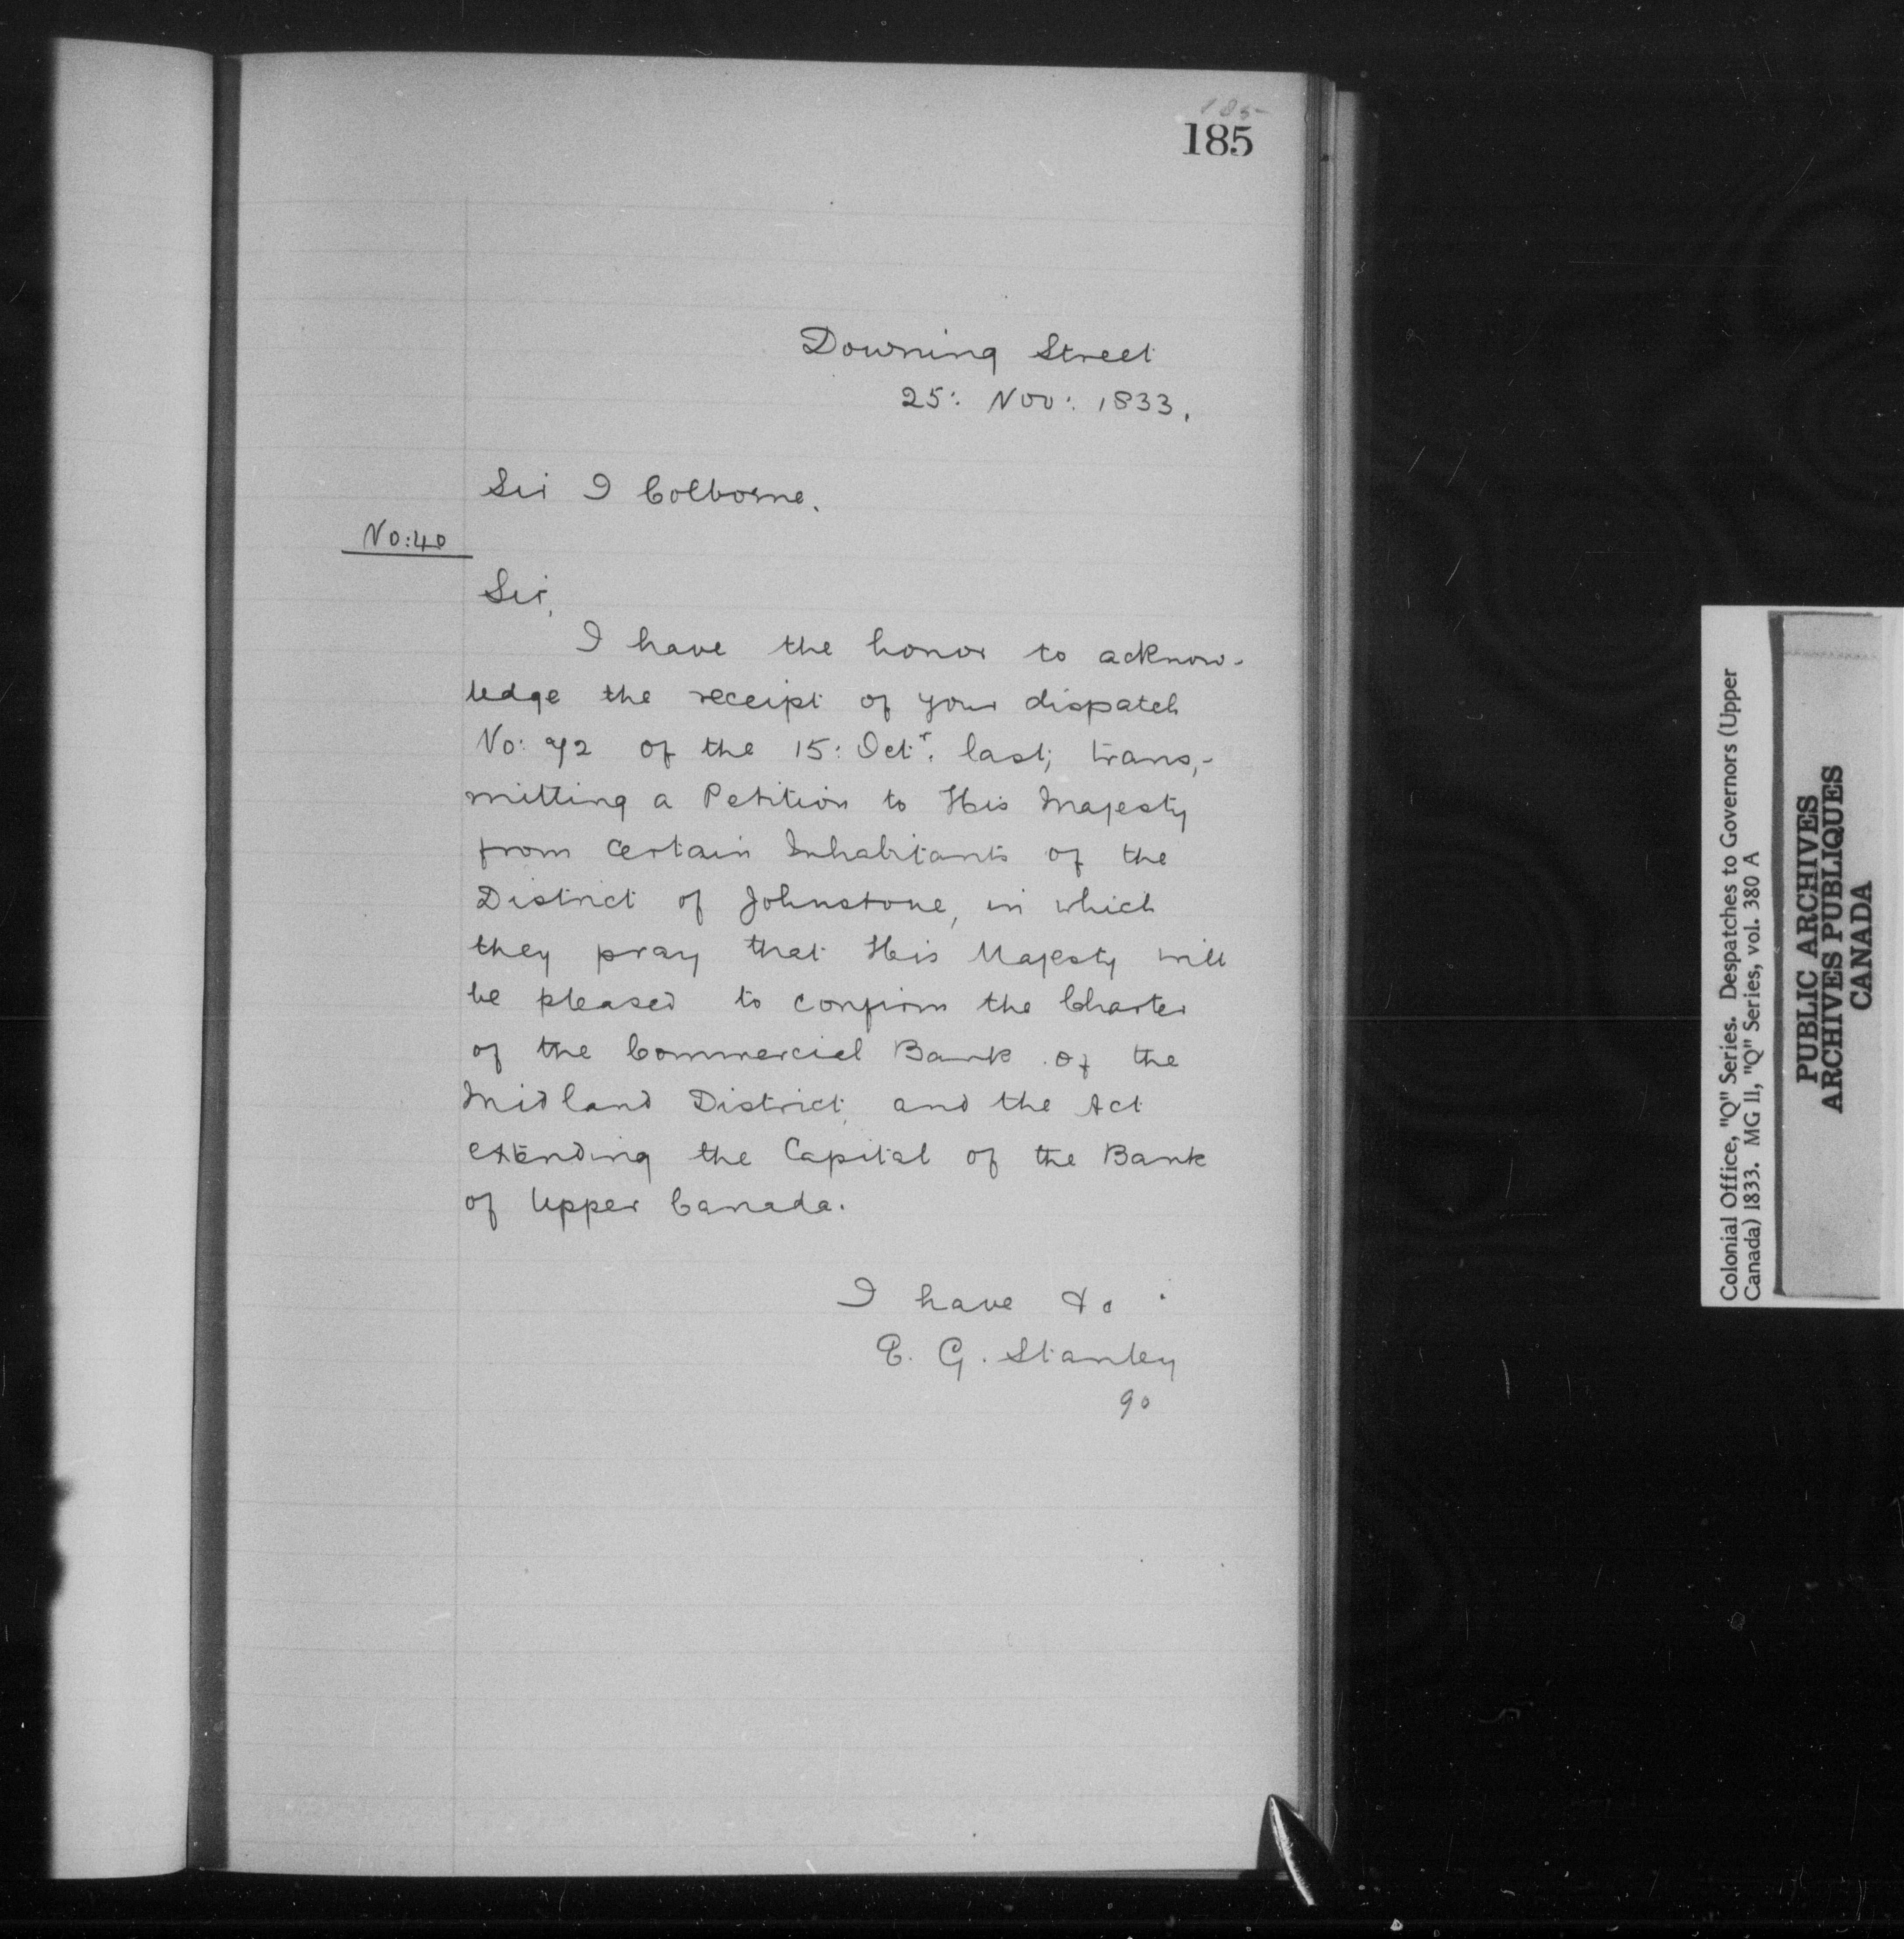 185
185
Downing Street
25: Nov: 1833.
Sir J Colborne.
No: 40
Sir,
I have the honor to acknow-
ledge the receipt of your dispatch
No: 72 of the 15: Octr. last, trans,-
mitting a Petition to His Majesty
from Certain Inhabitants of the
District of Johnstone, in which
they pray that His Majesty will
be pleased to confirm the Charter
of the Commercial Bank of the
Midland District, and the Act
extending the Capital of the Bank
of Upper Canada.
I have &c
E. G. Stanley
90
Colonial Office, "Q" Series. Despatches to Governors (Upper
Canada) 1833. MG 11, "Q" Series, vol. 380 A
PUBLIC ARCHIVES
ARCHIVES PUBLIQUES
CANADA